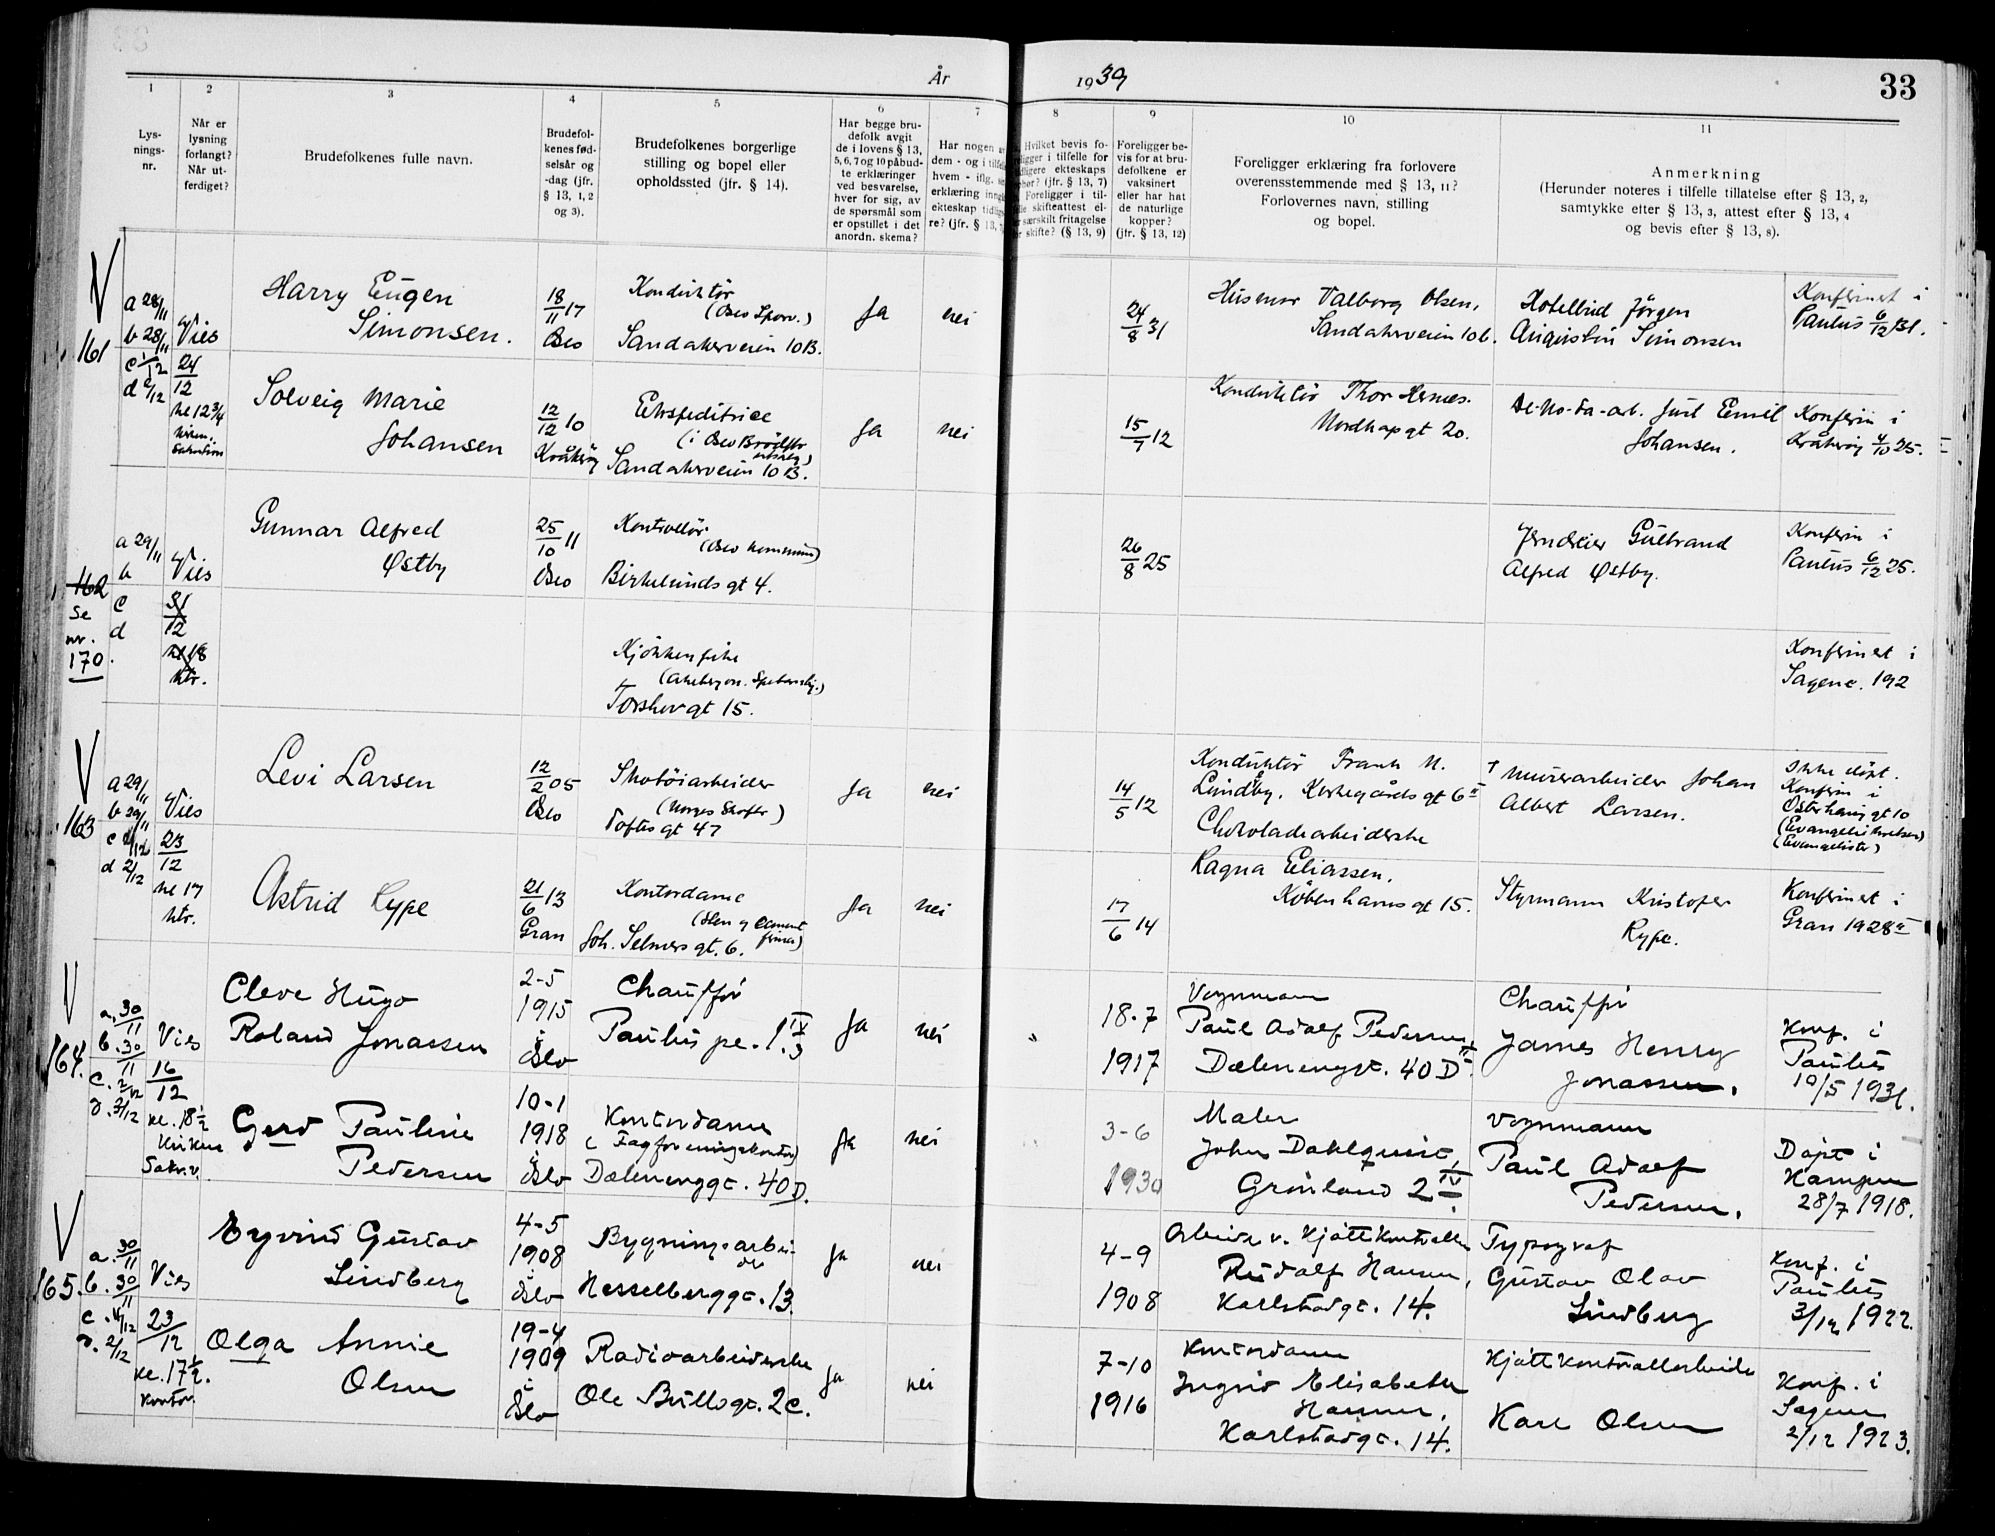 År 1939
33
1 2 3 4 5 6 7 8 9 10 11
Lys-
nings-
nr.
Når er
lysning
forlangt?
Når ut-
ferdiget?
Brudefolkenes fulle navn.
Brudefol-
kenes fød-
selsår og
-dag (jfr.
§ 13, 1, 2
og 3).
Brudefolkenes borgerlige
stilling og bopel eller
opholdssted (jfr. § 14).
Har begge bru-
defolk avgit
de i lovens § 13,
5, 6, 7 og 10 påbud-
te erklæringer
ved besvarelse,
hver for sig, av
de spørsmål som
er opstillet i det
anordn. skema?
Har nogen
dem - og i
hvem - iflg.
erklæring
ekteskap
re? (jfr. § 13,
Hvilket bevis fo-
i tilfelle for
ekteskaps
(jfr. § 13, 7)
Foreligger i til-
skifteattest el-
særskilt fritagelse
skifte? (§ 13, 9)
Foreligger be-
vis for at bru-
defolkene er
vaksinert
eller har hat
de naturlige
kopper?
(jfr. § 13, 12)
Foreligger erklæring fra forlovere
overensstemmende med § 13, 11?
Forlovernes navn, stilling
og bopel.
Anmerkning
(Herunder noteres i tilfelle tillatelse efter § 13, 2,
samtykke efter § 13, 3, attest efter § 13, 4
og bevis efter § 13, 8).
161
a 28/11
b 28/11
c 1/12
d 2/12
Vies
24/12
kl 12 3/4
Harry Eugen
Simonsen.
18/11 17
Oslo
Konduktør
(Oslo Sporv.)
Sandakerveien 10B.
Ja nei
24/8 31
Husmor Valborg Olsen,
Sandakerveien 10b.
Hotellbud Jørgen
Augustin Simonsen
Konfirmert i
Paulus 6/12 31.
Solveig Marie
Johansen
12/12 10
Kråkerøy
Ekspeditrice
Sandakerveien 10 B.
Ja nei
15/7 12
Konduktør Thor Hernes.
Nordkapgt 20.
De-No-Fa-arb. Juul Emil
Johansen.
Konfirm i
Kråkerøy 4/10 25.
162
Se
nr.
170.
a 29/11
b
c
d
Vies
31/12
kl 18
ktr.
Gunnar Alfred
Østby
25/10 11
Oslo
Kontrollør
(Oslo kommune)
Birkelunds gt 4.
26/8 25
Gulbrand
Alfred Østby.
Konfirm i
Paulus 6/12 25.
Kjøkkenpike
Torshovgt 15.
Konfirmert i
Sagene. 192
163
a 29/11
b 29/11
c 1/12
d 2/12
Vies
23/12
kl 17
ktr.
Levi Larsen
12/2 05
Oslo
Skotøiarbeider
Toftes gt 47
Ja nei
14/5 12
Konduktør Frank M.
Lundby. Kirkegårdsgt 6 II
Chokoladearbeiderske
† Murerarbeider Johan
Albert Larsen.
Ikke døpt.
Konfirm i
Osterhausgt 10
Astrid Rype
21/6 13
Gran
Kontordame
Joh. Selmers gt. 6.
Ja nei
17/6 14
Ragna Eliassen.
Københavnsgt 15.
Styrmann Kristofer
Rype.
Konfirmert i
Gran 1928
164.
a. 30/11
b. 30/11
c. 2/12
d. 2/12
Vies
16/12
kl. 18 1/2
Cleve Hugo
Roland Jonassen
2-5
1915
i
Oslo
Chauffør
Paulus pl. 1. IV
Ja nei
18-7
1917
Vognmann
Paul Adolf Pedersen
Dælenenggt. 40 D
Chauffør
James Henry
Jonassen.
Konf. i
Paulus
10/5 1931.
Gerd Pauline
Pedersen
10-1
1918
i
Oslo
Kontordame
(Fagforeningskontor)
Dælenenggt. 40 D.
Ja nei
3-6
1930
Maler
John Dahlquist,
Grønland 2 IV.
Vognmann
Paul Adolf
Pedersen.
Døpt i
Hampen
28/7 1918.
165.
a. 30/11
b. 30/11
c. 1/12
d. 2/12
Vies
23/12
kl. 17 1/2.
kontor
Eyvind Gustav
Lindberg
4-5
1908
i
Oslo
Bygningsarbei-
der
Hesselberggt. 13.
Ja nei
4-9
1908
Arbeider v. Kjøttkontrollen
Rudolf Hansen,
Karlstadgt. 14.
Typograf
Gustav Olav
Lindberg
Konf. i
Paulus
3/12 1922.
Olga Annie
Olsen
19-4
1909
i
Oslo
Radioarbeiderske
Ole Bullsgt. 2c.
Ja nei
7-10
1916
Kontordame
Ingrid Elisabeth
Hansen,
Karlstadgt. 14.
Kjøttkontrollarbeider
Karl Olsen
Konf. i
Sagene
2/12 1923.